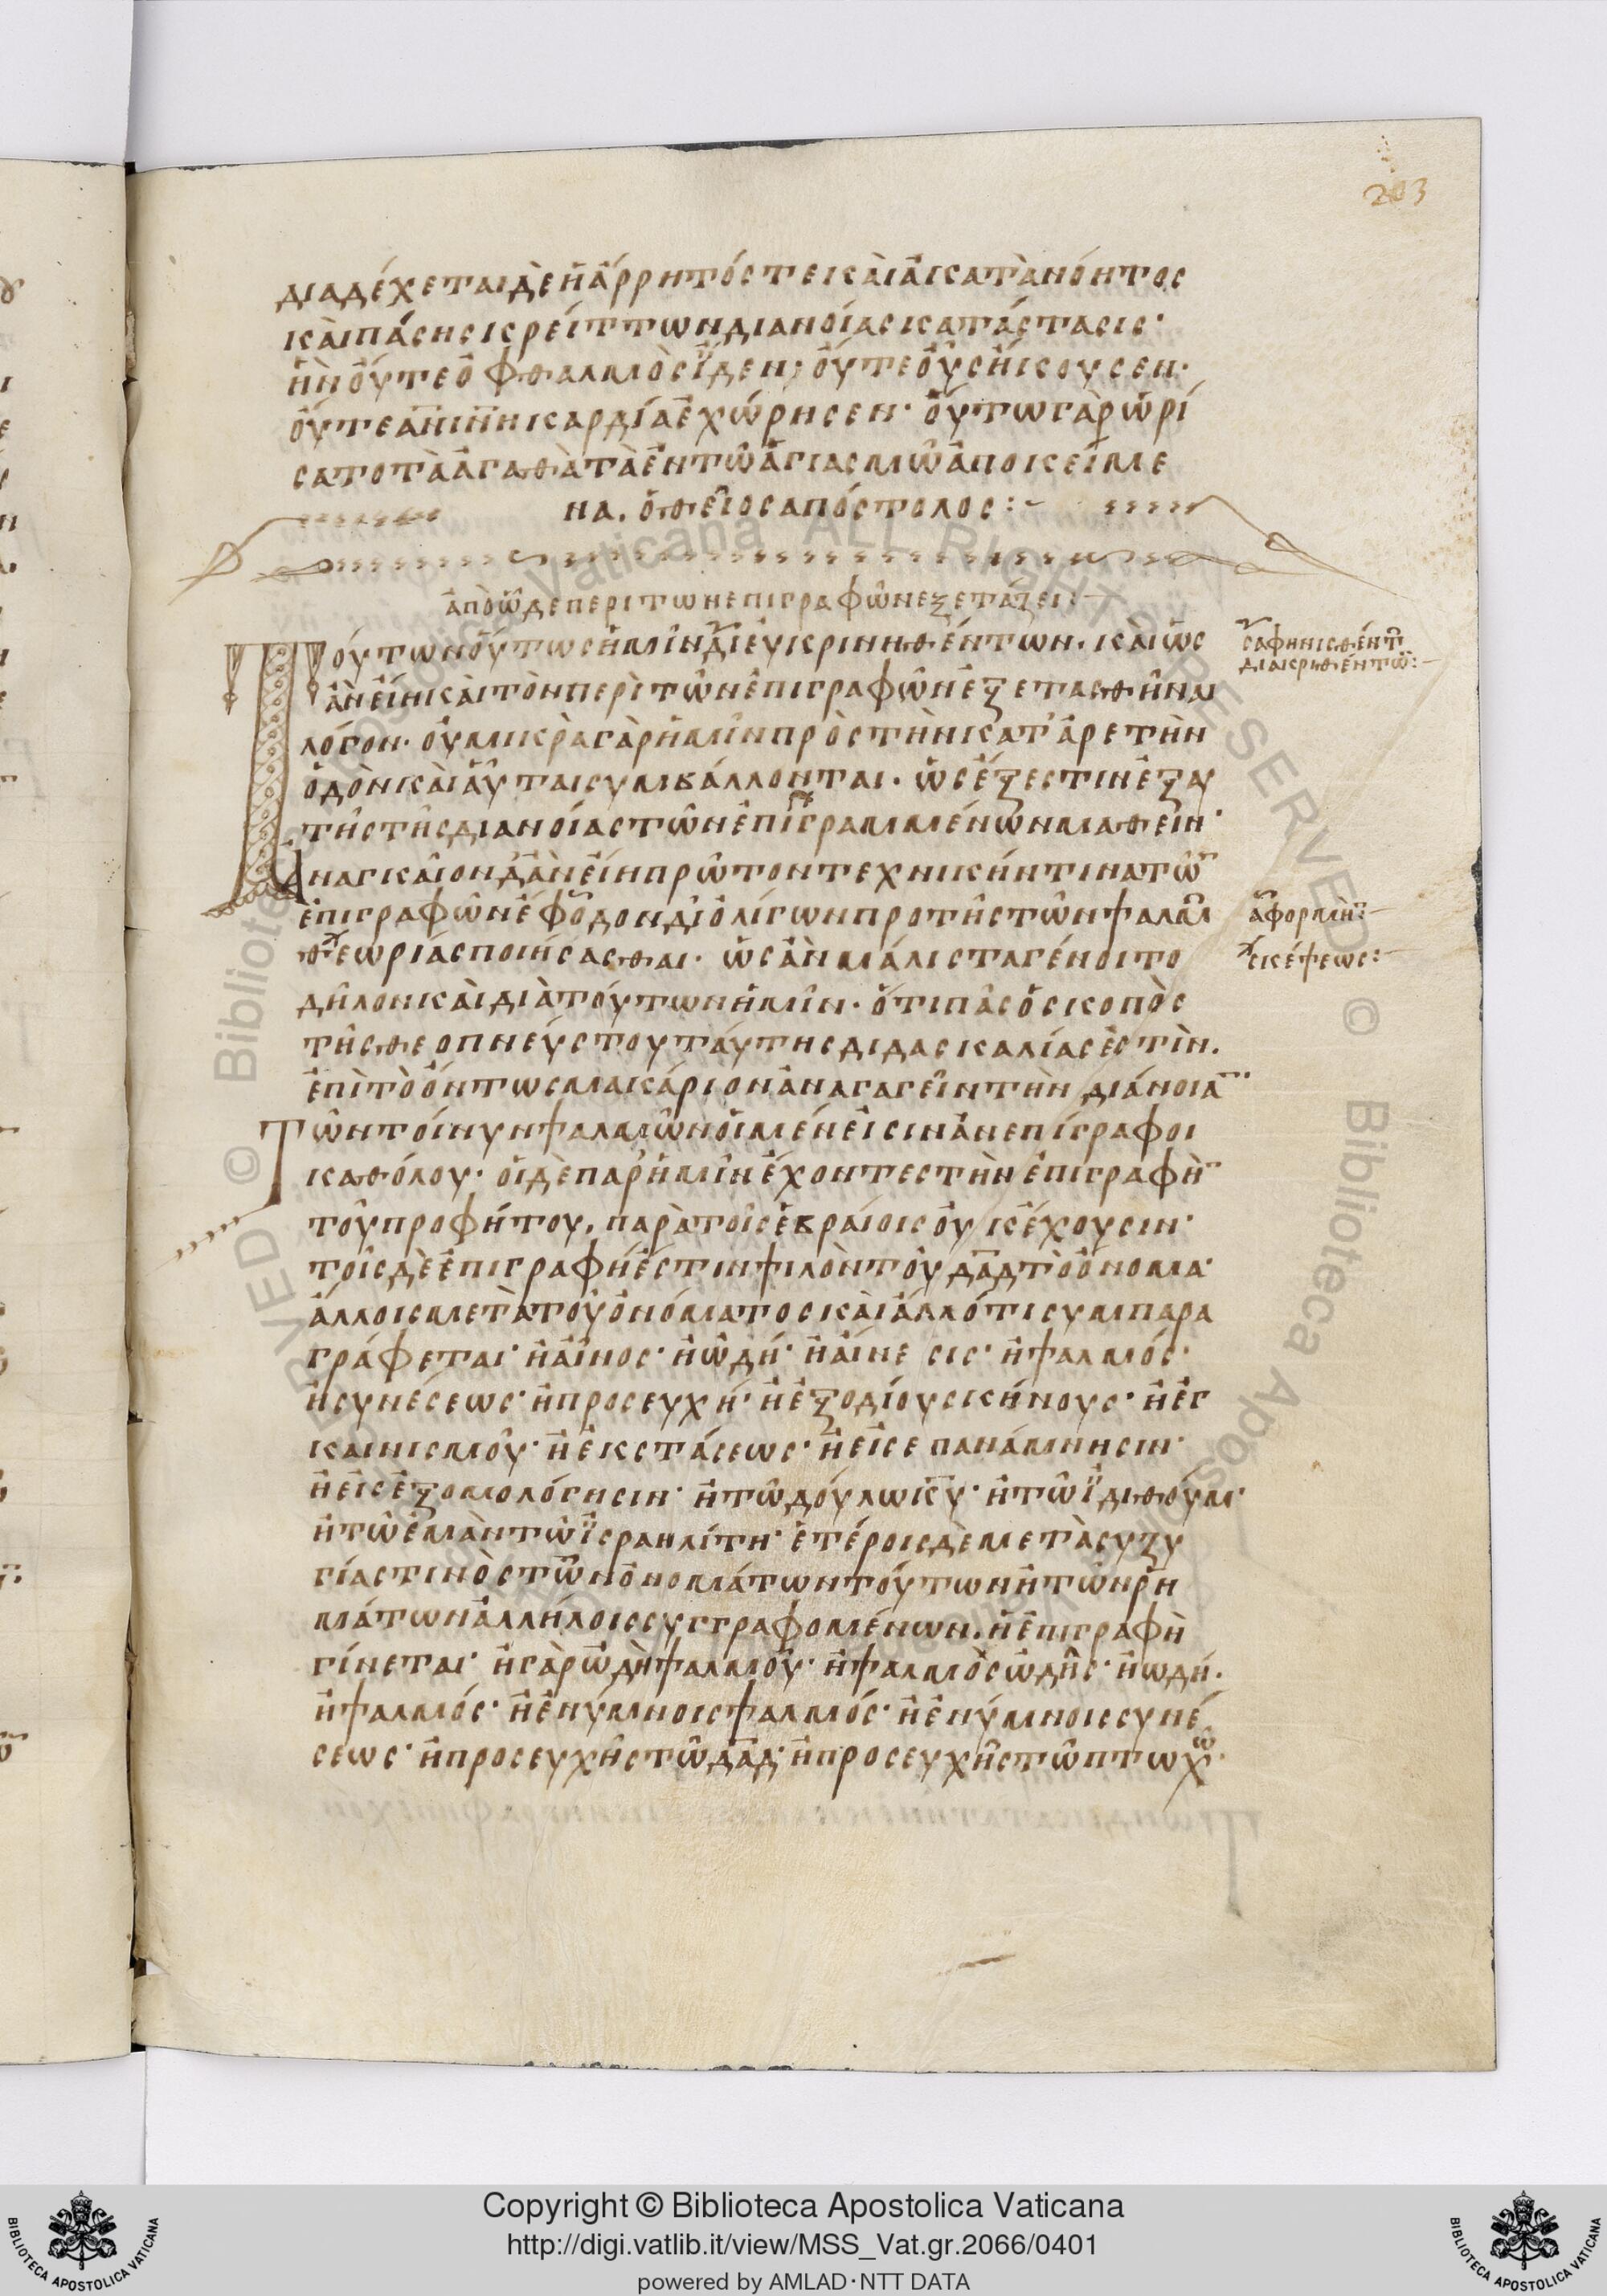 203
διαδέχεται δὲ ἡ ἄρρητός τε καὶ ἀκατανόητος
καὶ πάσης κρείττων διανοίας κατάστασις·
ἣν οὔτε ὀφθαλμὸς ἴδεν; οὔτε οὖς ἤκουσεν·
οὔτε ἀνων καρδία ἐχώρησεν· οὕτω γὰρ ὡρί
σατο τὰ ἀγαθὰ τὰ ἐν τῷ ἁγιασμῷ ἀποκείμε
να. ὁ θεῖος απόστολος :~
ἀπὸ ὧδε περι των επιγραφῶν εξετάζει :
Τούτων οὕτως ἡμῖν διευκρινηθέντων. καὶ ὡς
ἂν εἴη καὶ τὸν περὶ τῶν ἐπιγραφῶν ἐξετασθῆναι
λόγον· οὐ μικρὰ γὰρ ἡμῖν πρὸς τὴν κατ' ἀρετὴν
ὁδὸν καὶ αὗται συμβάλλονται. ὡς ἔξεστιν ἐξ αυ
τῆς τῆς διανοίας τῶν ἐπιγραμμένων μαθεῖν·
Αναγκαῖον δ' ἂν εἴη πρῶτον τεχνικήν τινα τῶ
ἐπιγραφῶν ἔφοδον δι' ὀλίγων προ τῆς τῶν ψαλμ
θεωρίας ποιήσασθαι· ὡς ἂν μάλιστα γένοιτο
δῆλον καὶ διὰ τούτων ἡμῖν· ὅτι πᾶς ὁ σκοπὸς
τῆς θεοπνεύστου ταύτης διδασκαλίας ἐστὶν.
ἐπὶ τὸ ὄντως μακάριον ἀναγαγεῖν τὴν διάνοια
Τῶν τοίνυν ψαλμῶν οἱ μέν εἰσιν ἀνεπίγραφοι
καθόλου· οἱ δὲ παρ' ἡμῖν ἔχοντες τὴν ἐπιγραφὴ
τοῦ προφήτου, παρὰ τοῖς ἑβραίοις οὐκ ἔχουσιν·
τοῖς δὲ ἐπιγραφή ἐστιν ψιλὸν τοῦ δαδ τὸ ὄνομα·
ἄλλοις μετὰ τοῦ ὀνόματος καὶ ἄλλό τι συμπαρα
γράφεται· ἢ αἶνος· ἢ ὠδή· ἢ αίνεσις· ἢ ψαλμός·
ἢ συνέσεως· ἢ προσευχή· ἢ ἐξοδίου σκήνους· ἢ ἐγ
καινισμοῦ· ἢ ἐκστάσεως· ἢ εἰς επανάμνησιν·
ἢ εἰς ἐξομολόγησιν· ἢ τῶ δούλω κυ· ἢ τῶ ἰδιθούμ·
ἢ τῶ ἐμὰν τῶ ἰσραηλίτη· ἑτέροις δὲ μετὰ συζυ
γίας τινὸς τῶν ὀνομάτων τούτων ἢ τῶν ῥη
μάτων ἀλλήλοις συγγραφομένων. ἡ ἐπιγραφὴ
γίνεται· ἢ γὰρ ὠδὴ ψαλμοῦ· ἢ ψαλμὸς ὠδῆς· ἢ ωδή.
ἢ ψαλμός· ἢ ἐν ύμνοις ψαλμός· ἢ ἐν ύμνοις συνέ
σεως· ἢ προσευχῆς τῶ δαδ· ἢ προσευχῆς τῶ πτωχῶ·
σαφηνισθέντ
διακριθέντω :
ἀφορμὴν
σκέψεως :
Copyright © Biblioteca Apostolica Vaticana
http://digi.vatlib.it/view/MSS_Vat.gr.2066/0401
powered by AMLAD·NTT DATA
BIBLIOTECA APOSTOLICA VATICANA
BIBLIOTECA APOSTOLICA VATICANA